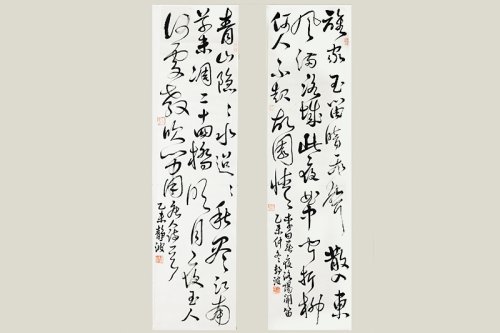 谁家玉笛暗飞聲散入東
風满洛城此夜曲中闻折柳
何人不起故園情
李白春夜洛陽闻笛
乙未仲冬静波
青山隐〻水迢〻秋尽江南
草未凋二十四橋明月夜玉人
何處教吹箫
唐人诗
乙未静波